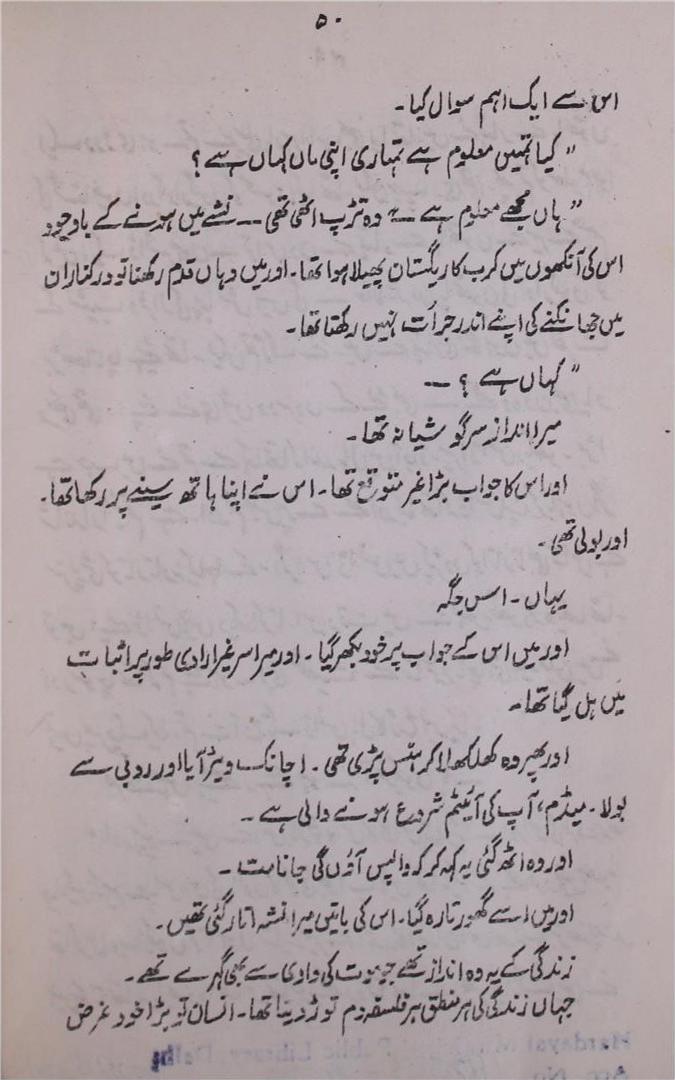 ۵۰
اس سے ایک اہم سوال کیا۔
"کیا تمہیں معلوم ہے تمہاری اپنی ماں کہاں ہے؟
"ہاں مجھے معلوم ہے" وہ تڑپ اٹھی تھی -- نشے میں ہونے کے باوجود
اس کی آنکھوں میں کرب کا ریگستان پھیلا ہوا تھا۔ اور میں وہاں قدم رکھنا تو درکنار ان
میں جھانکنے کی اپنے اندر جرأت نہیں رکھتا تھا۔
"کہاں ہے؟ --
میرا انداز سرگوشیانہ تھا۔
اور اس کا جواب بڑا غیر متوقع تھا۔ اس نے اپنا ہاتھ سینے پر رکھا تھا۔
اور بولی تھی۔
یہاں۔ اسس جگہ
اور میں اس کے جواب پر خود بکھر گیا۔ اور میرا سر غیر ارادی طور پر اثبات
میں ہل گیا تھا۔
اور پھر وہ کھلکھلا کر ہنس پڑی تھی۔ اچانک ویٹر آیا اور روبی سے
بولا۔ میڈم، آپ کی آئیٹم شروع ہونے والی ہے۔
اور وہ اٹھ گئی یہ کہہ کر کہ واپس آؤں گی جانا مت۔
اور میں اسے گھورتا رہ گیا۔ اس کی باتیں میرا نشہ اتار گئی تھیں۔
زندگی کے یہ وہ انداز تھے جو موت کی وادی سے بھی گہرے تھے۔
جہاں زندگی کی ہر منطق ہر فلسفہ دم توڑ دیتا تھا۔ انسان تو بڑا خود غرض